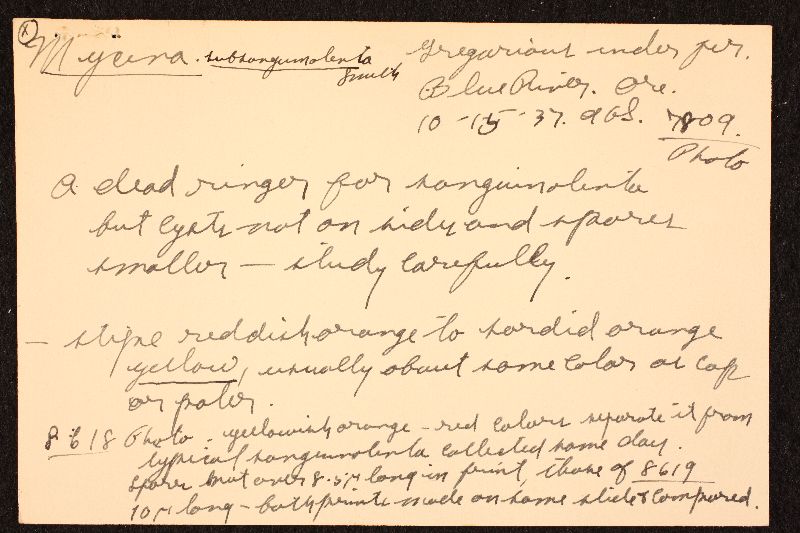 (x)
Mycena. subsanguinolenta
Smith
Gregarious under fir.
Blue River. Ore.
10-15-37. AHS. 7809.
Photo
A dead ringer for sanguinolenta
but cysts not on sides and spores
smaller — study carefully.
— stipe reddish orange to sordid orange
yellow, usually about same color as cap
or paler.
8618 Photo. yellowish orange-red colors separate it from
typical sanguinolenta collected same day.
Spores not over 8.5μ long in print, those of 8619
10μ long - both prints made on same slide & compared.